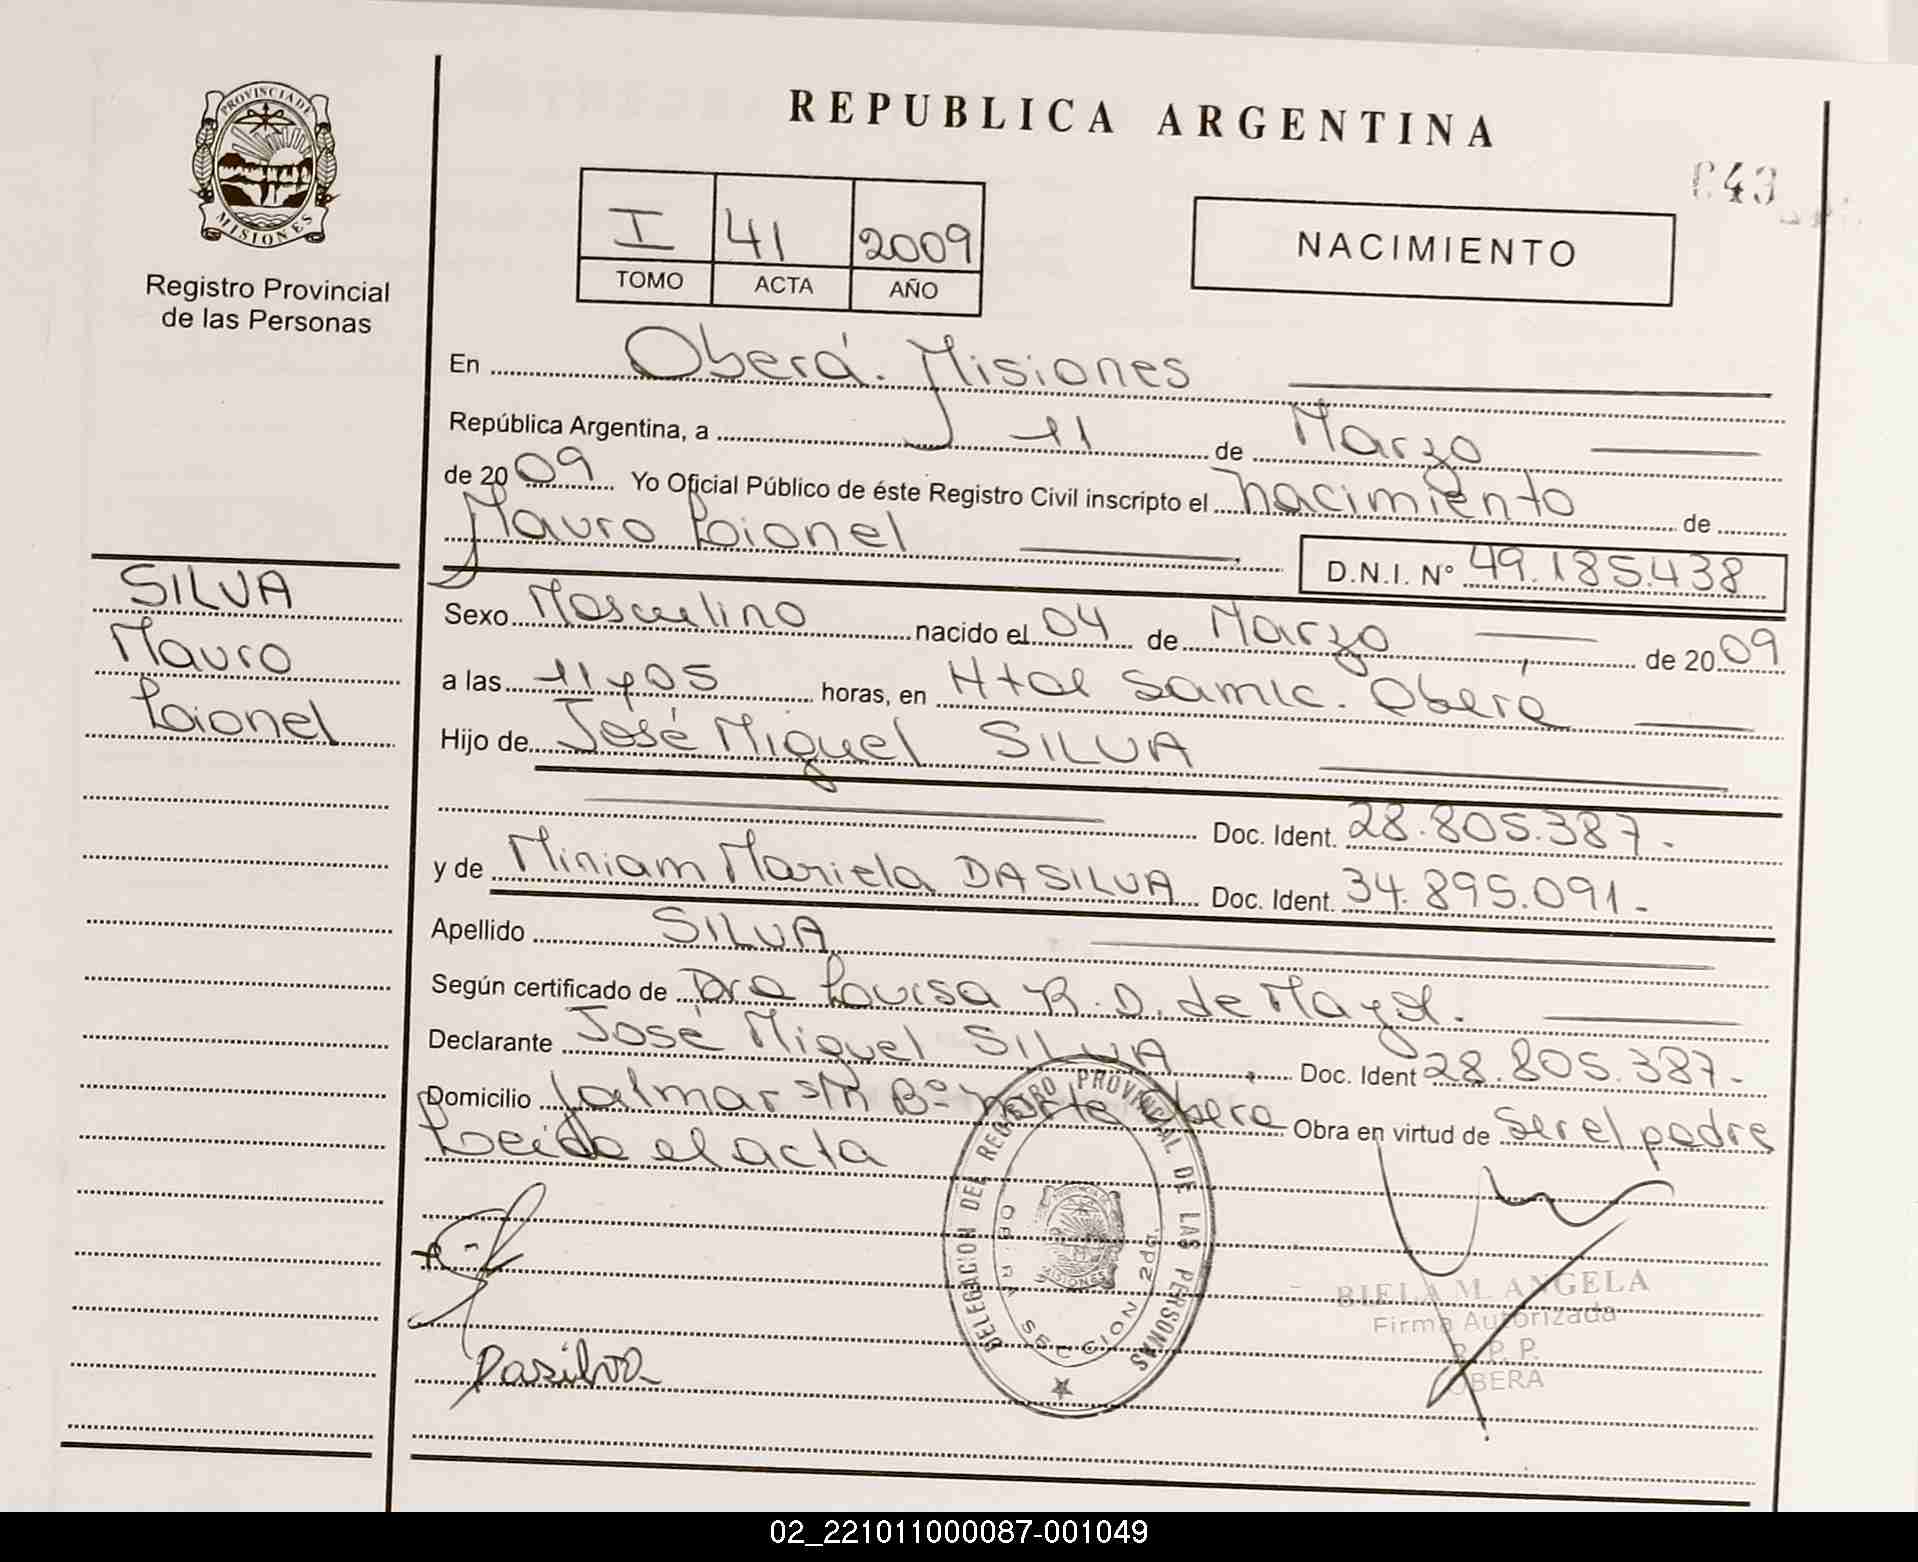 REPUBLICA ARGENTINA
043
PROVINCIA DE
MISIONES
Registro Provincial
de las Personas
I 41 2009
TOMO ACTA AÑO
NACIMIENTO
En Oberá. Misiones
República Argentina, a 11 de Marzo
de 2009 Yo Oficial Público de éste Registro Civil inscripto el nacimiento de
Mauro Lionel D.N.I. N° 49.185.438
SILVA
Mauro
Lionel
Sexo Masculino nacido el 04 de Marzo de 2009
a las 11 y 05 horas, en Htal Samic. Oberá
Hijo de José Miguel SILVA
Doc. Ident. 28.805.387.-
y de Miriam Mariela DASILVA Doc. Ident. 34.895.091.-
Apellido SILVA
Según certificado de Dra Louisa R. D. de
Declarante José Miguel SILVA Doc. Ident 28.805.387.-
Domicilio s/n Bº Norte Oberá Obra en virtud de ser el padre
Leida el acta
DELEGACION DEL REGISTRO PROVINCIAL DE LAS PERSONAS
SECCION 2da.
MISIONES
BIELA M. ANGELA
Firma Autorizada
R. P. P.
OBERA
Dasilva
02_221011000087-001049